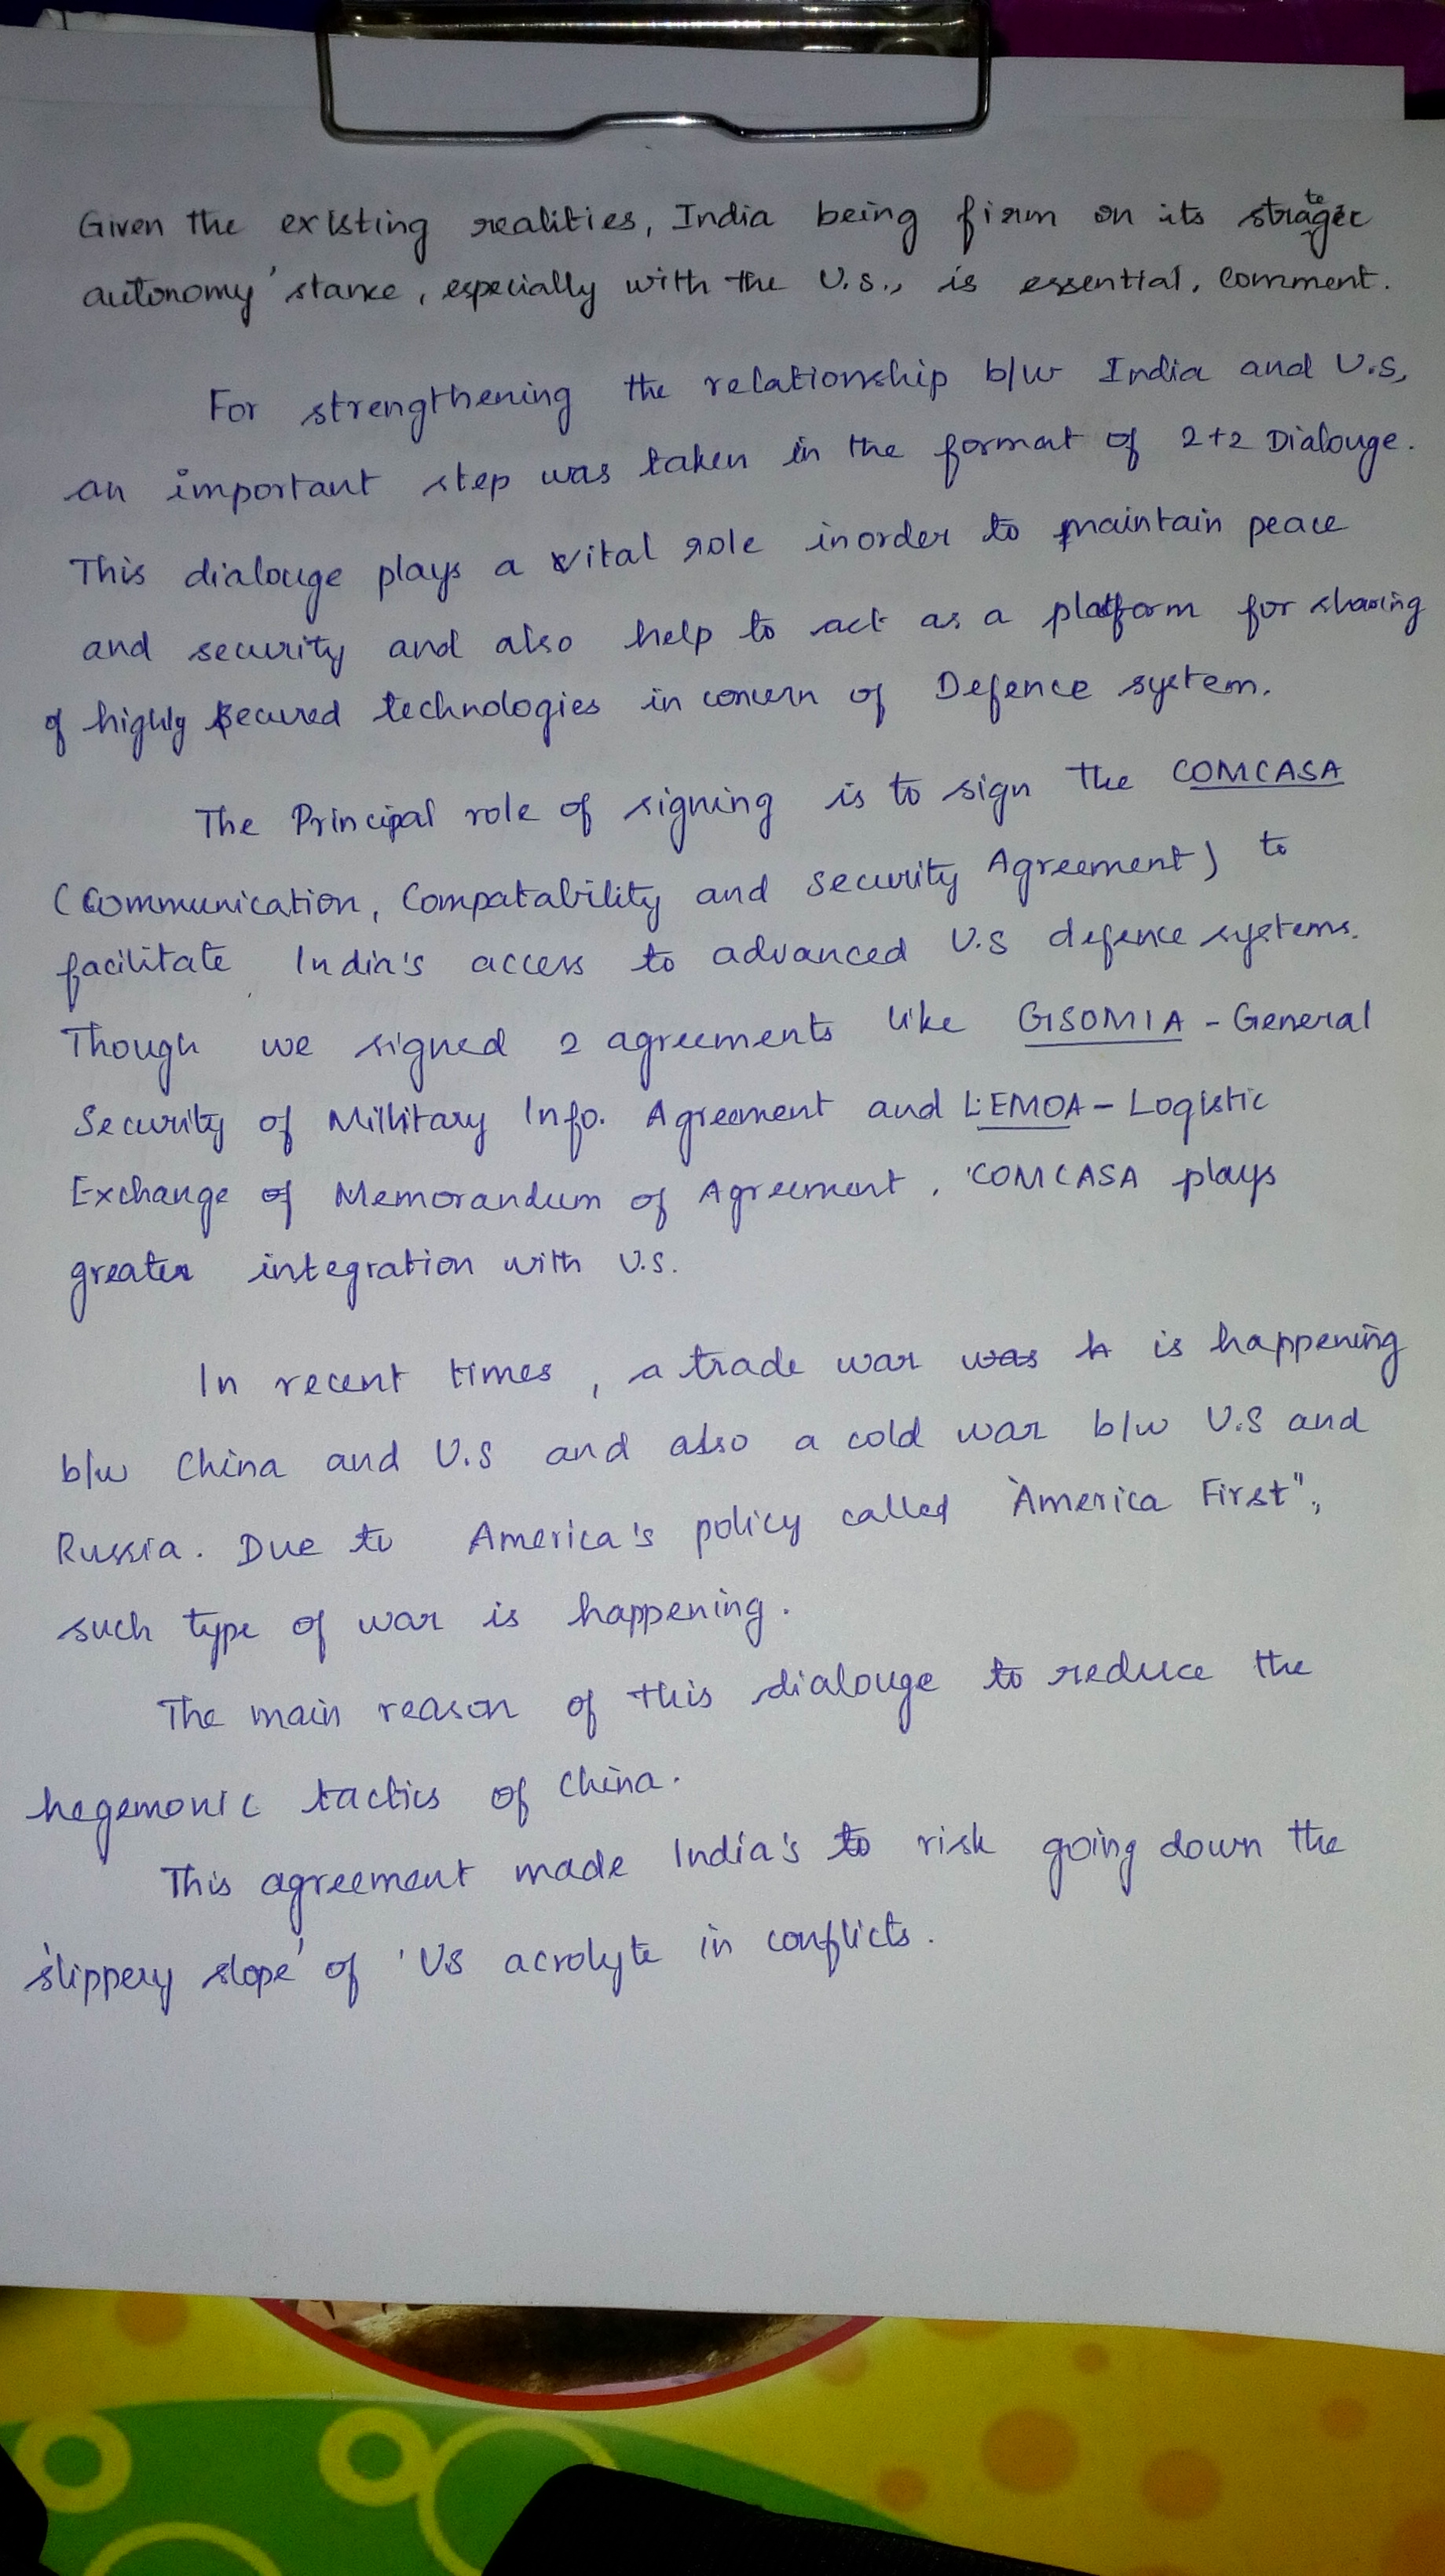 Given the existing realities, India being firm on its strategic
autonomy' stance, especially with the U.S., is essential. Comment.
For strengthening the relationship b/w India and U.S,
an important step was taken in the format of 2+2 Dialouge.
This dialouge plays a vital role inorder to maintain peace
and security and also help to act as a platform for sharing
of highly secured technologies in concern of Defence system.
The Principal role of signing is to sign the COMCASA
(Communication, Compatability and Security Agreement) to
facilitate India's access to advanced U.S defence systems.
Though we signed 2 agreements like GISOMIA - General
Security of Millitary Info. Agreement and LEMOA - Logistic
Exchange of Memorandum of Agreement. 'COMCASA plays
greater integration with U.S.
In recent times, a trade war was is happening
b/w China and U.S and also a cold war b/w U.S and
Russia. Due to America's policy called "America First",
such type of war is happening.
The main reason of this dialouge to reduce the
hegemonic tactics of China.
This agreement made India's to risk going down the
'slippery slope' of 'US acrolyte in conflicts.